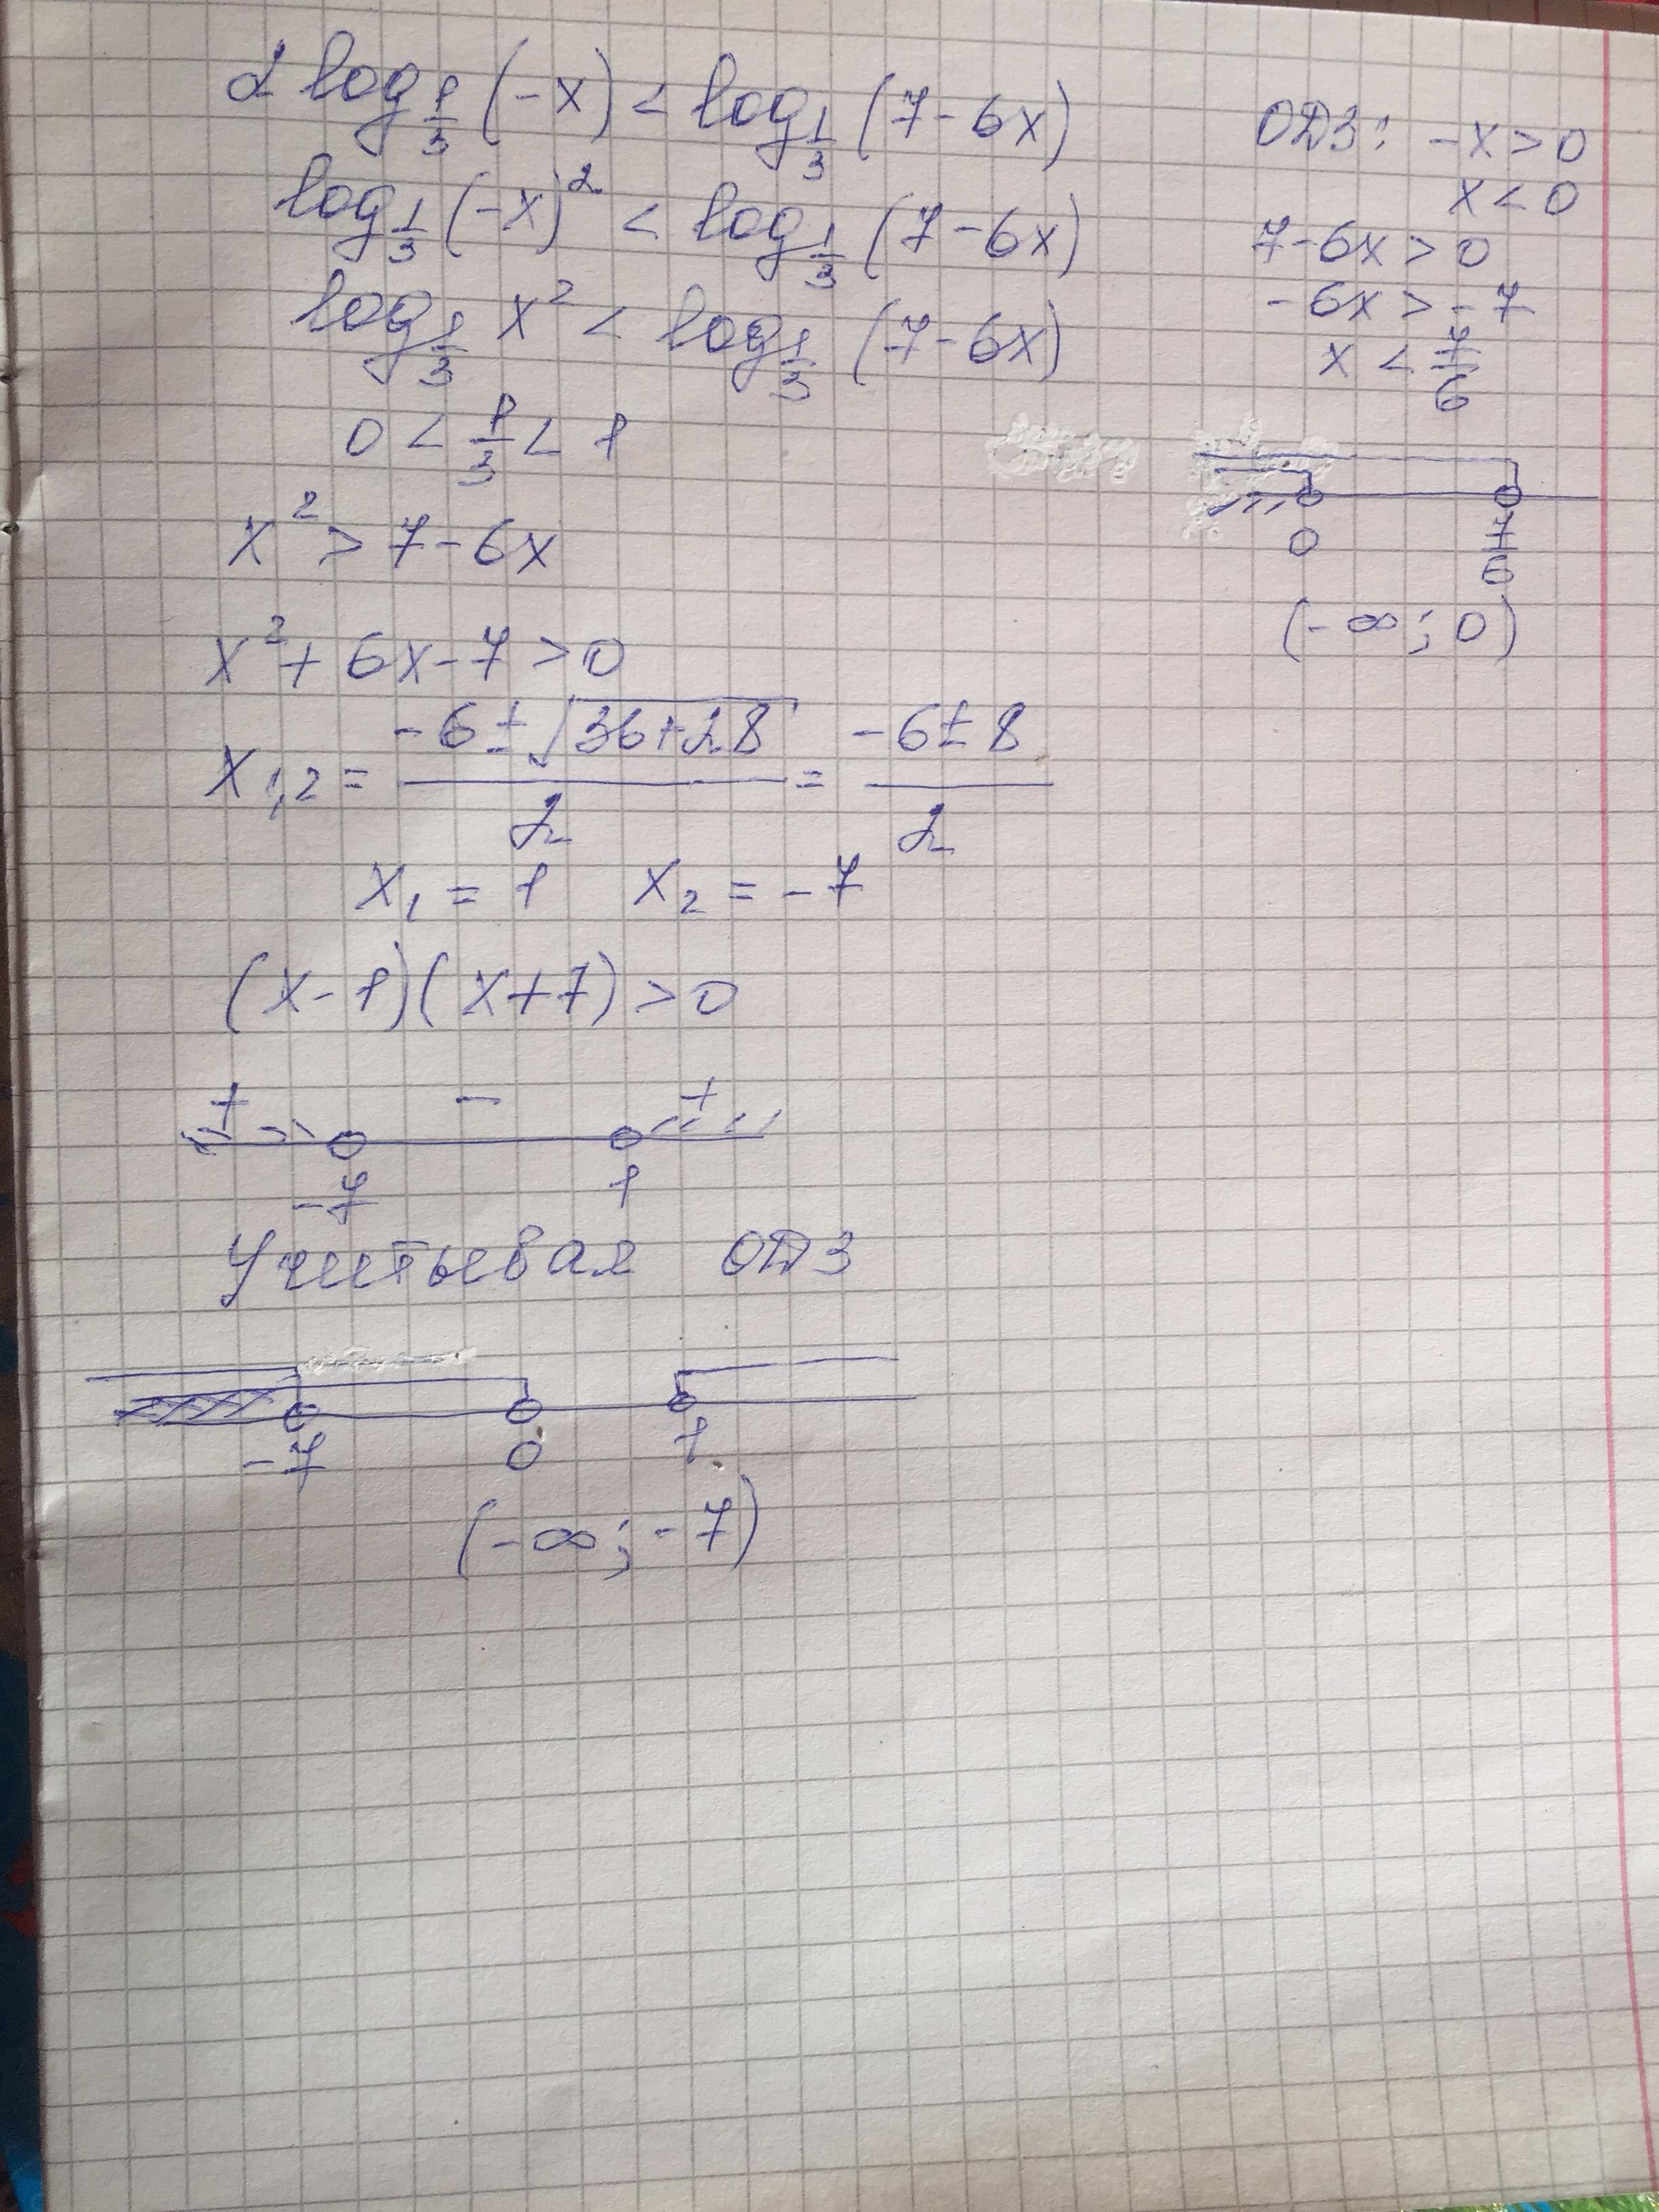 2 log 1/3 (-x) < log 1/3 (7-6x)
log 1/3 (-x)² < log 1/3 (7-6x)
log 1/3 x² < log 1/3 (7-6x)
0 < 1/3 < 1
x² > 7-6x
x² + 6x - 7 > 0
x1,2 = (-6 ± √(36+28))/2 = (-6 ± 8)/2
x1 = 1 x2 = -7
(x-1)(x+7) > 0
+ - +
-7 1
Учитывая ОДЗ
-7 0 1
(-∞; -7)
ОДЗ: -x > 0
x < 0
7-6x > 0
-6x > -7
x < 7/6
0 7/6
(-∞; 0)